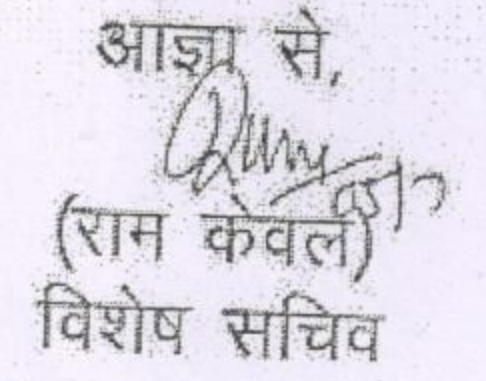 आज्ञा से,
(राम केवल)
विशेष सचिव